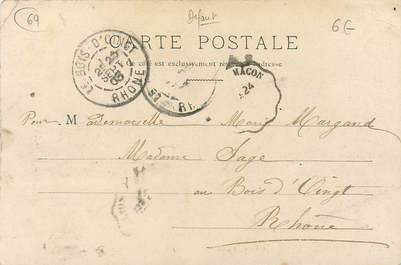 69
Défaut
6€
CARTE POSTALE
Ce côté est exclusivement réservé à l'adresse
LE BOIS-D'OINGT
RHONE
MACON
24
Pour Mademoiselle Marie Margand
Madame Sage
au Bois d'Oingt
Rhône